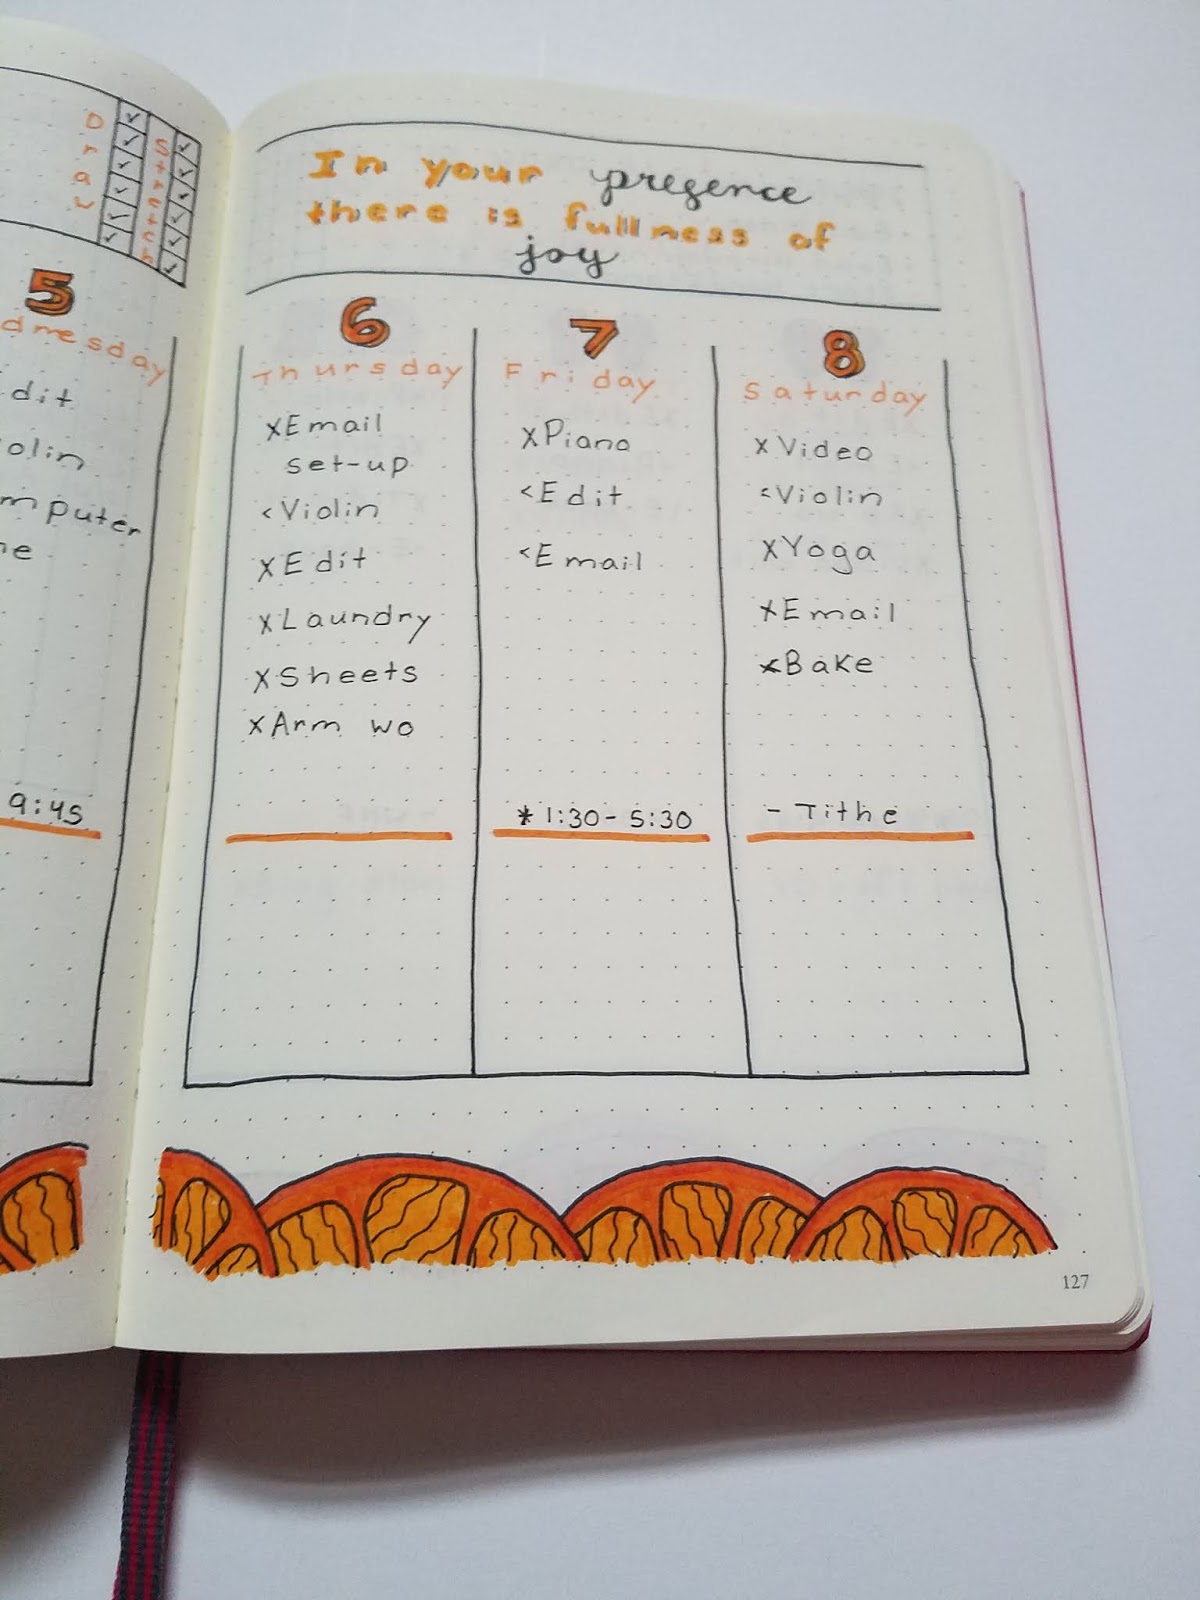 Draw
Stretch
5
dnesday
dit
olin
mputer
ne
9:45
In your presence
there is fullness of
joy
6
Thursday
xEmail
set-up
<Violin
xEdit
xLaundry
xSheets
xArm wo
7
Friday
xPiano
<Edit
<Email
* 1:30 - 5:30
8
Saturday
xVideo
<Violin
xYoga
xEmail
xBake
- Tithe
127